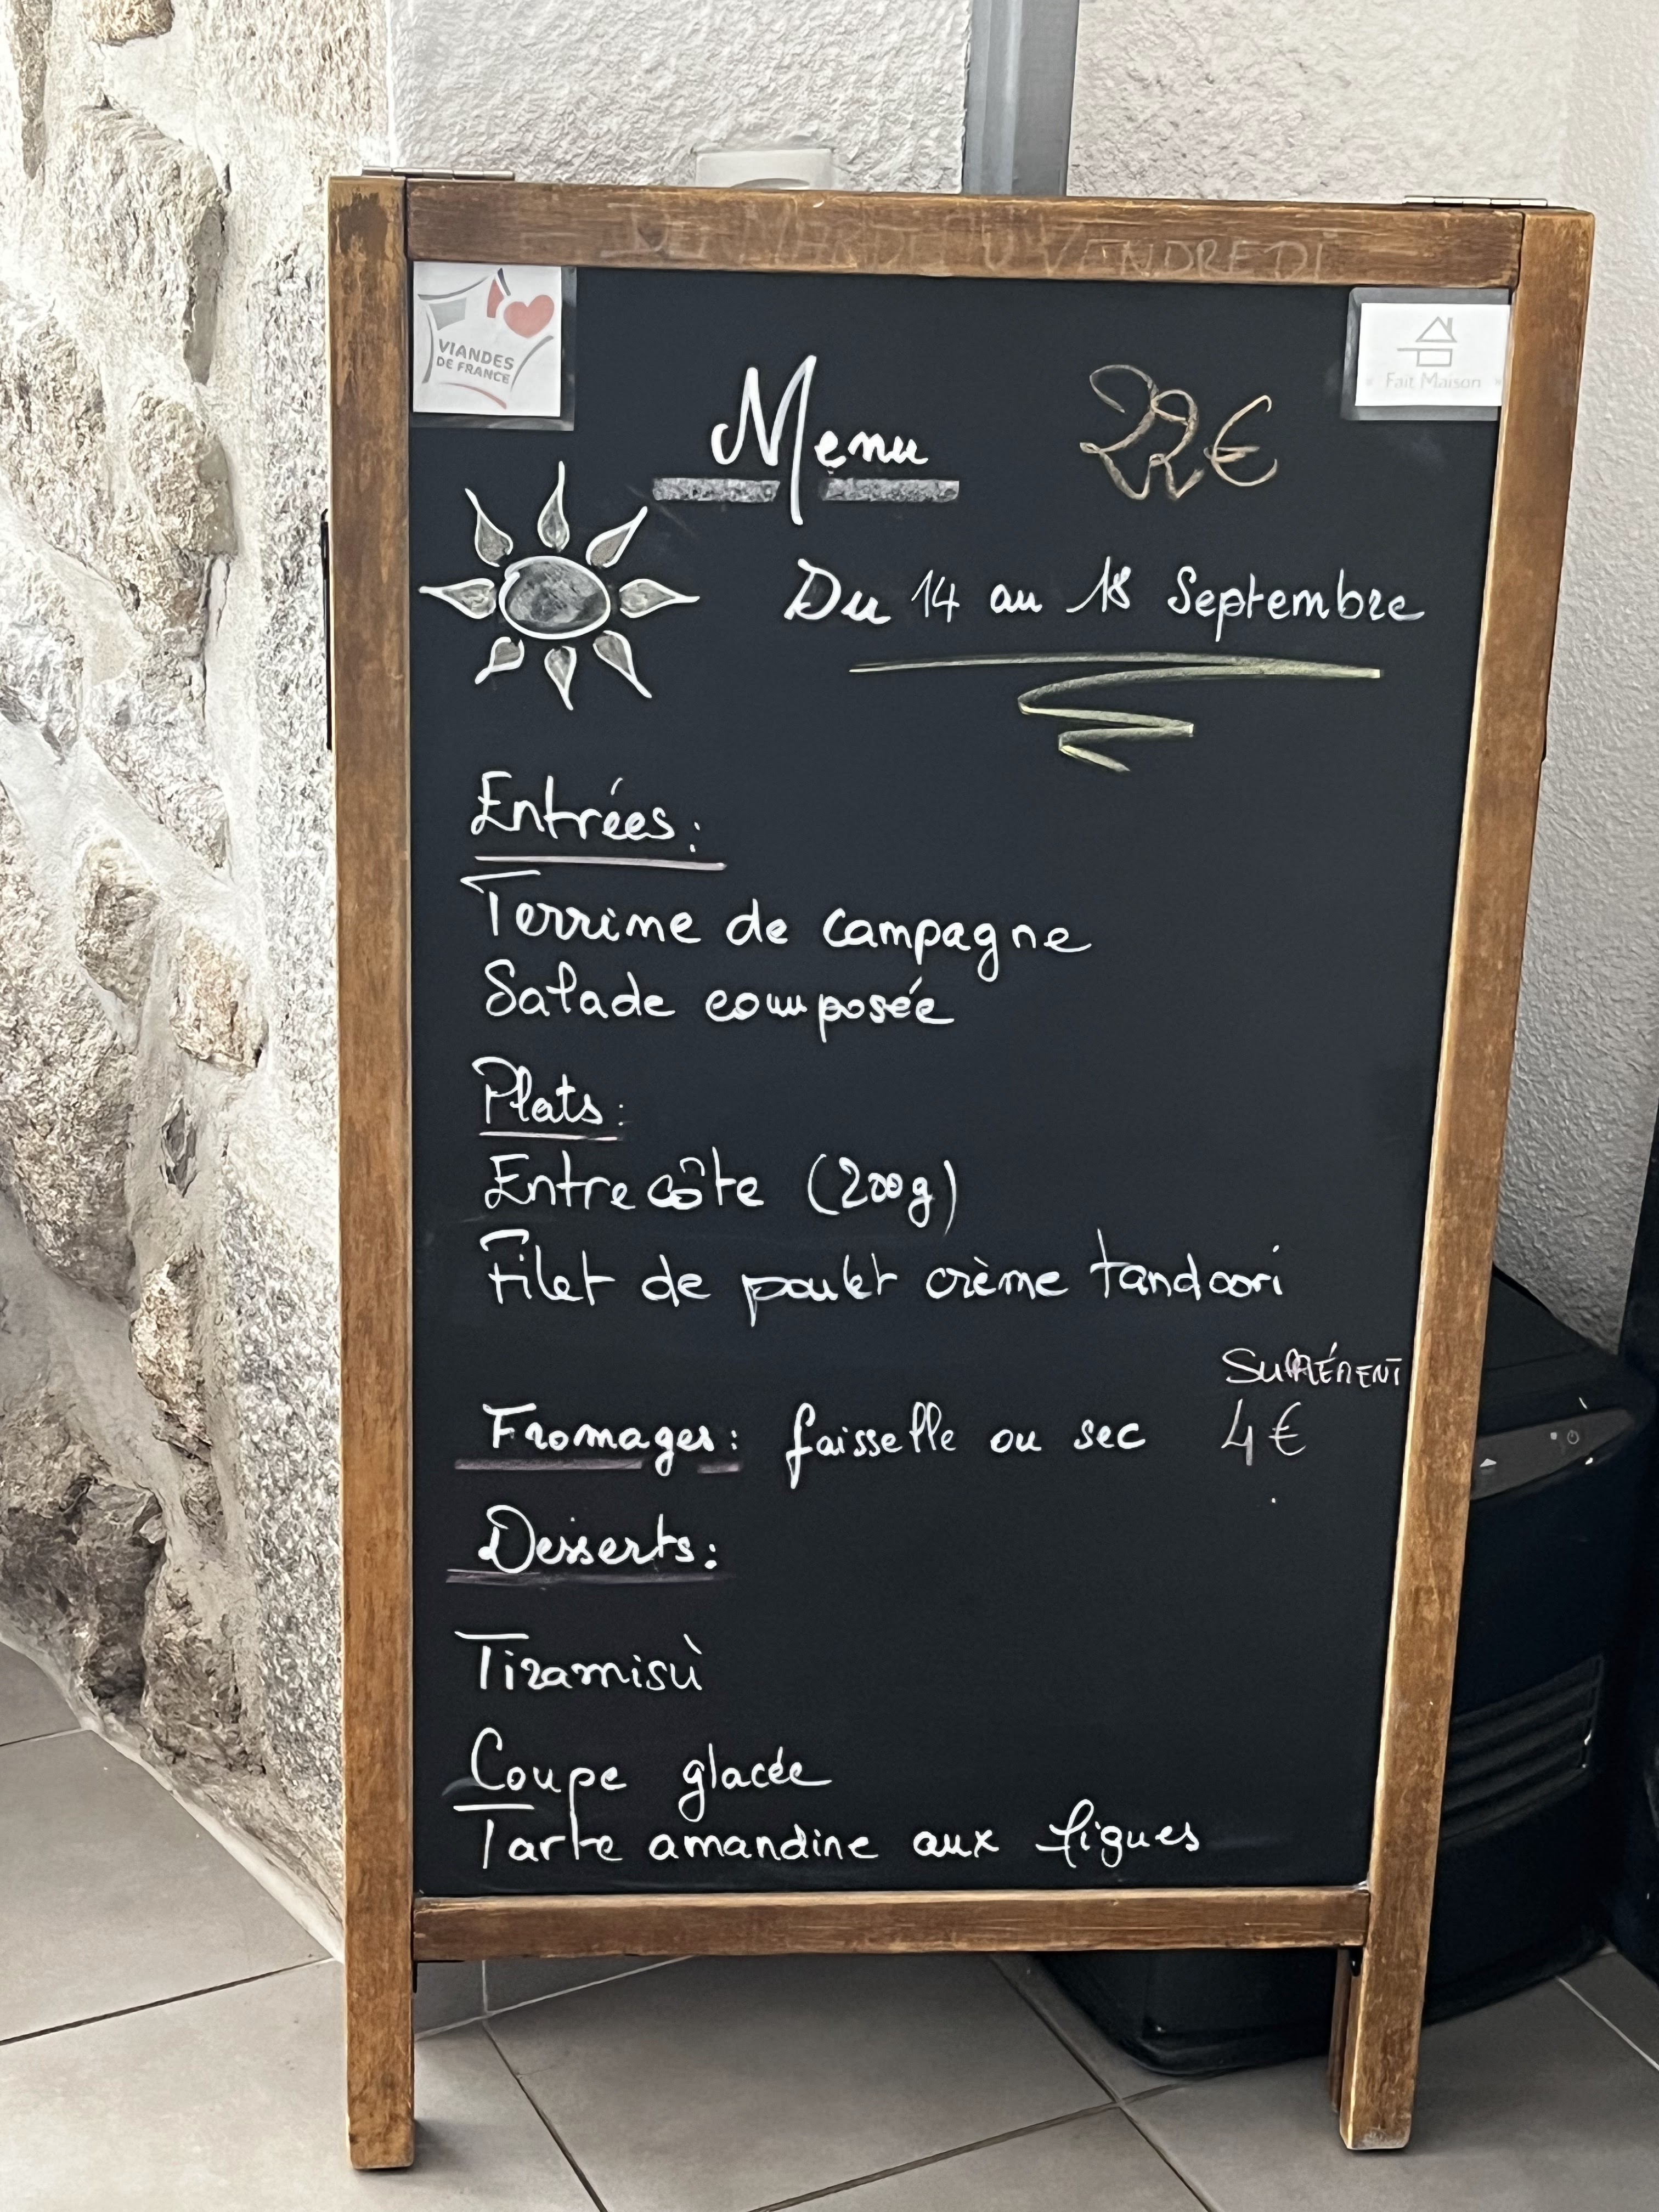 DU MARDI AU VENDREDI
VIANDES
DE FRANCE
Fait Maison
Menu 22€
Du 14 au 18 Septembre
Entrées:
Terrine de campagne
Salade composée
Plats:
Entrecôte (200g)
Filet de poulet crème tandoori
SUPPLÉMENT
Fromages: faisselle ou sec 4€
Desserts:
Tiramisù
Coupe glacée
Tarte amandine aux figues